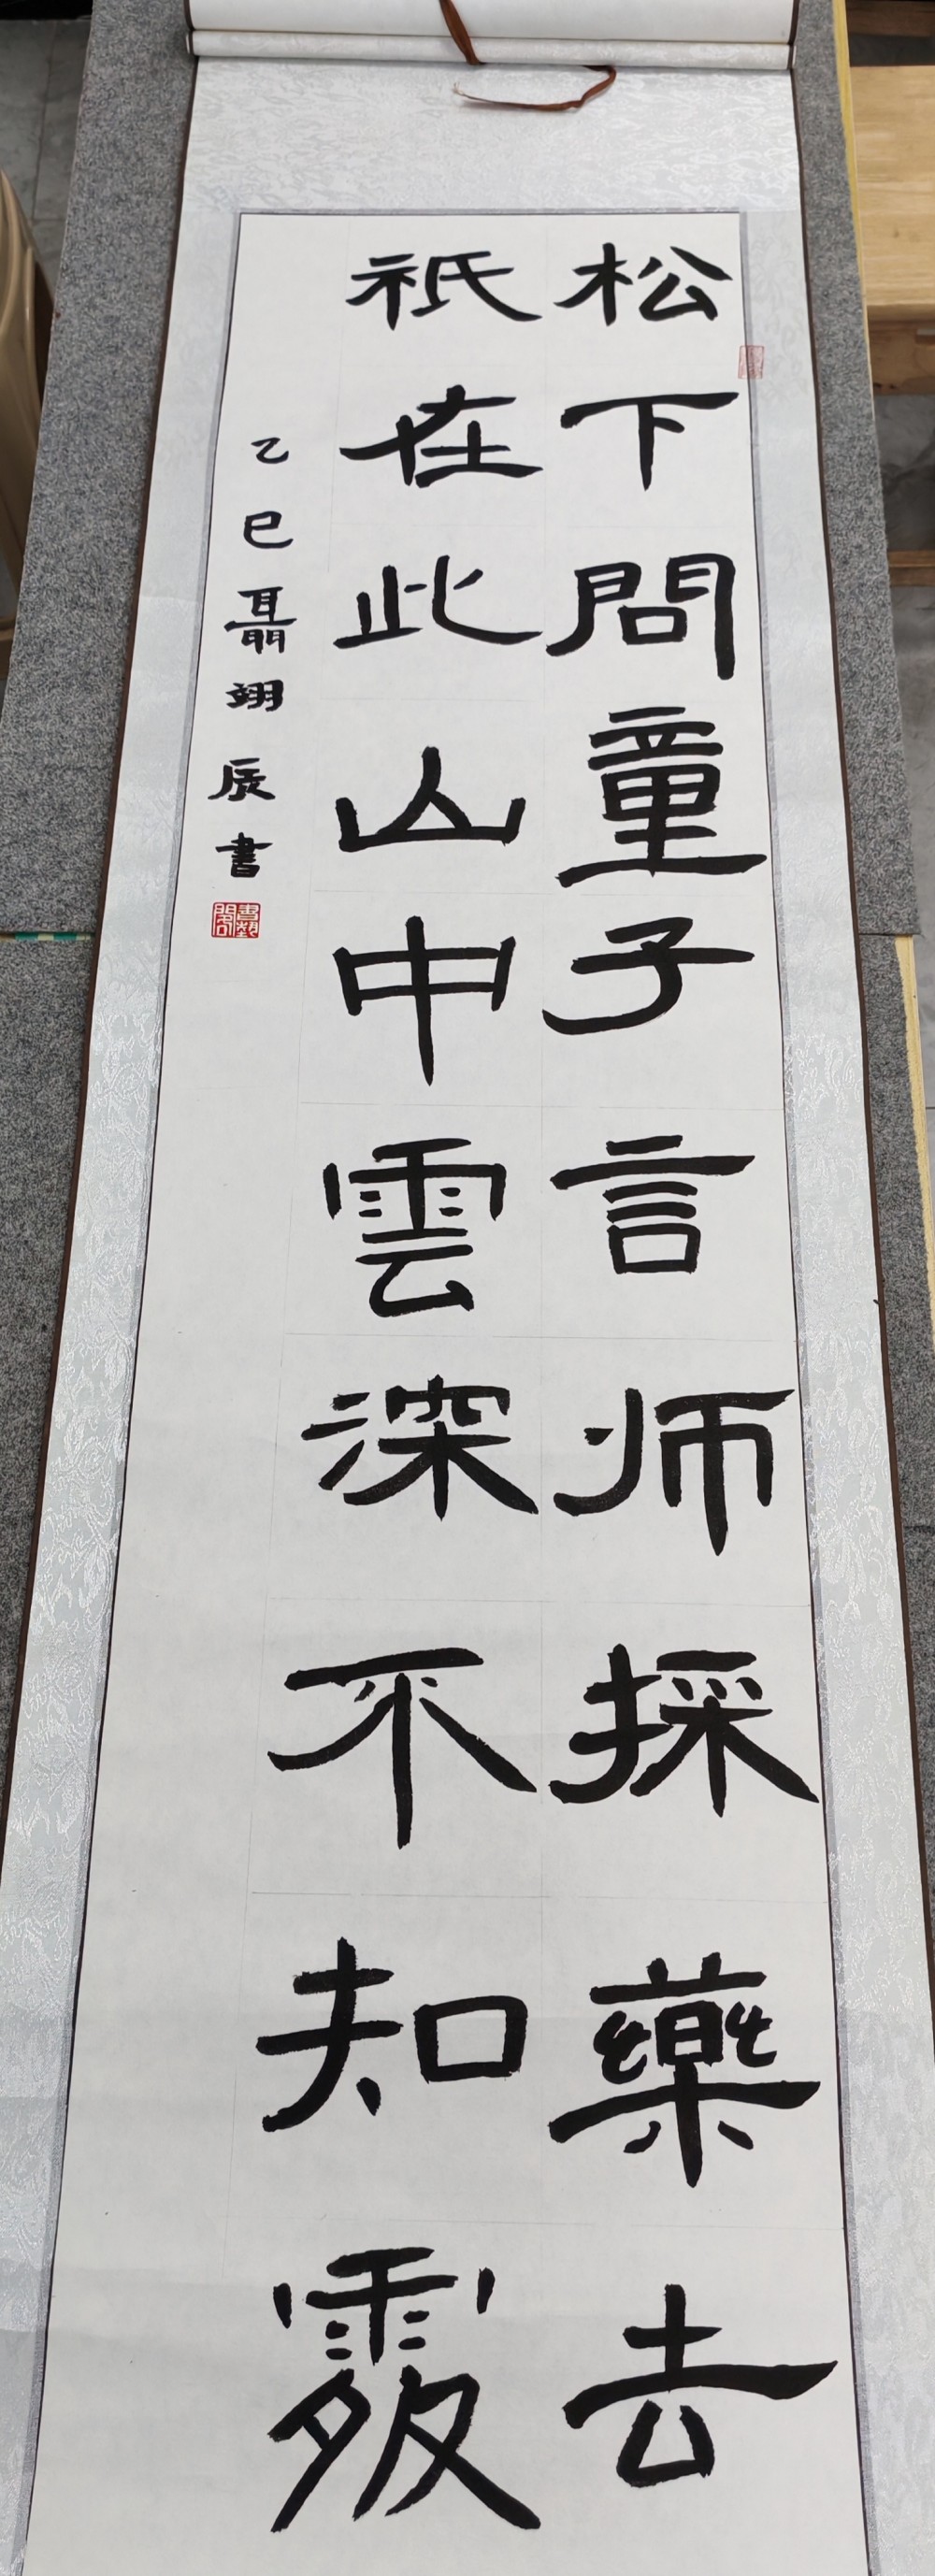 松下問童子言师採藥去
祇在此山中雲深不知處
乙巳聶翊辰書